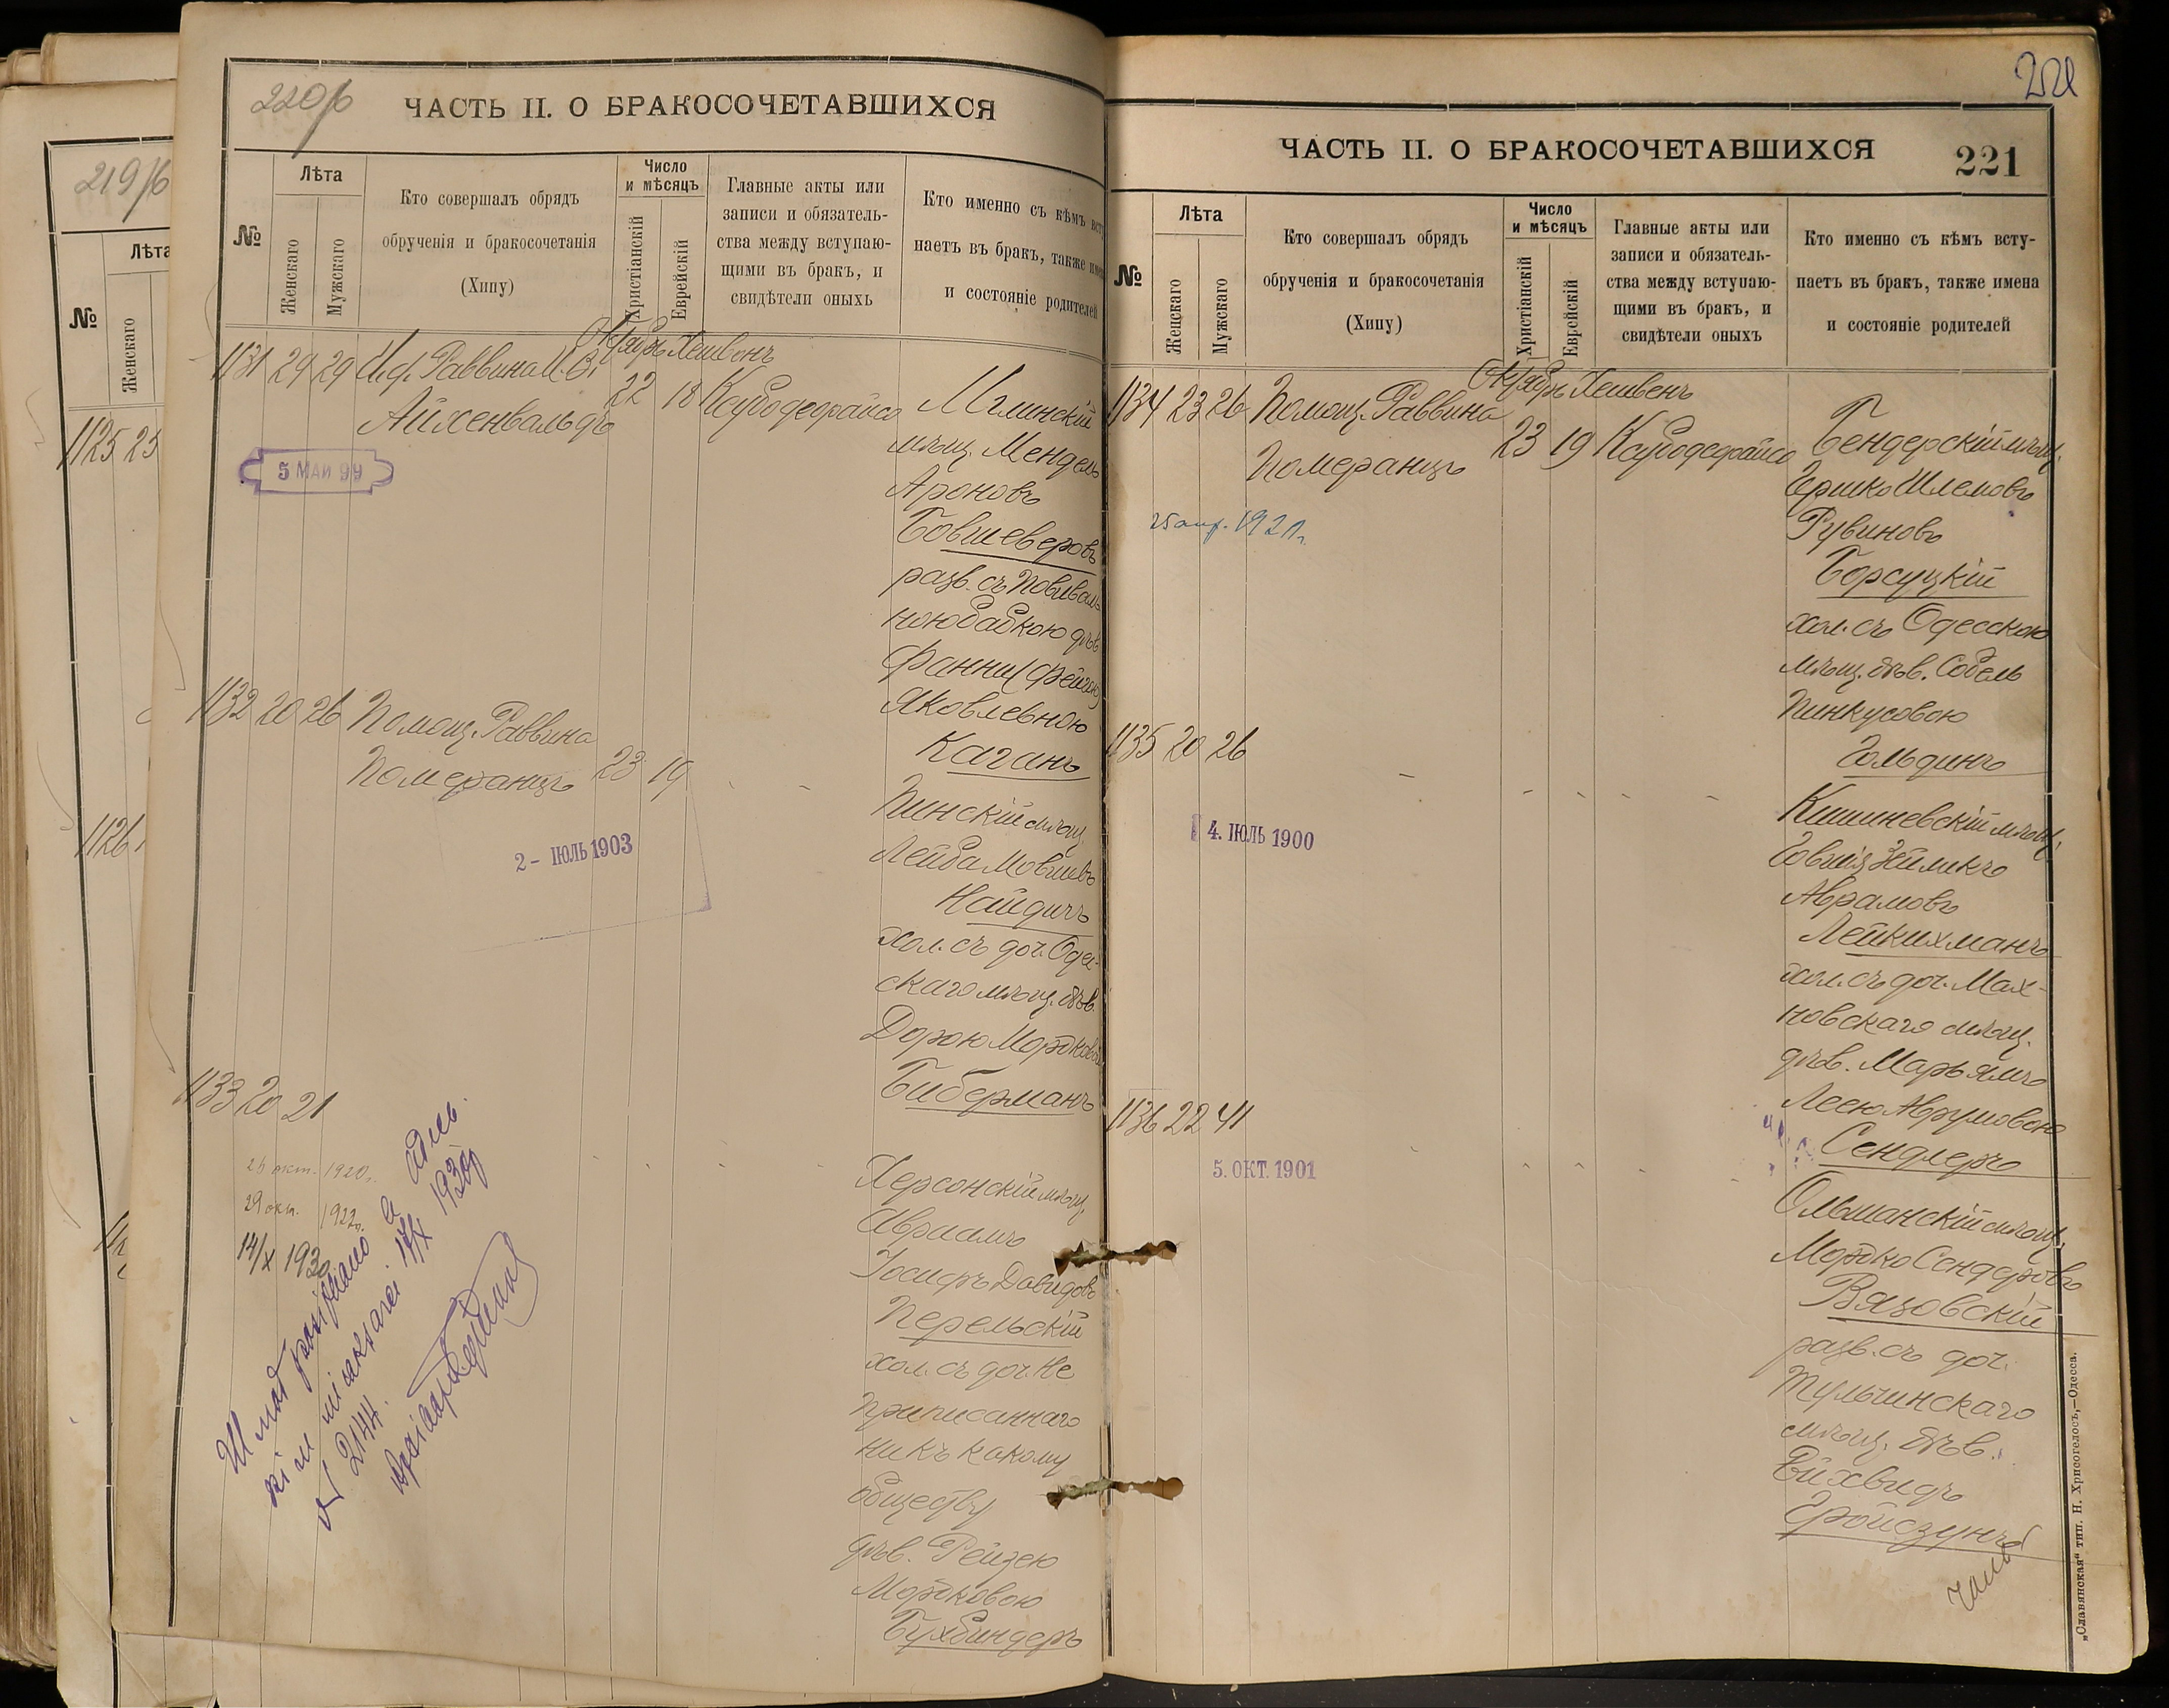 219/б
Лѣта
№
Женскаго
1125 25
1126
220/б
ЧАСТЬ II. О БРАКОСОЧЕТАВШИХСЯ
№
Лѣта
Женскаго
Мужскаго
Кто совершалъ обрядъ
обрученія и бракосочетанія
(Хипу)
Число
и мѣсяцъ
Христіанскій
Еврейскій
Главные акты или
записи и обязатель-
ства между вступаю-
щими въ бракъ, и
свидѣтели оныхъ
Кто именно съ кѣмъ всту
паетъ въ бракъ, также имена
и состояніе родителей
Октябрь Хешвенъ
1131 29 29 И.д. Раввина
Айхенвальдъ
22 18
Мглинскій
мѣщ. Мендель
Ароновъ
Бовшеверовъ
разв. съ Повиваль
ною бабкою дѣв.
Фанни (Фейгою)
Яковлевною
Каганъ
5 МАИ 99
1132 20 26 Помощ. Раввина
Померанцъ 23 19
Пинскій мѣщ.
Лейба Мовшевъ
Найдичъ
хол. съ доч. Одес-
скаго мѣщ. дѣв.
Дорою Мордковою
Биберманъ
2 - ІЮЛЬ 1903
1133 20 21
Херсонскій мѣщ.
Авраамъ
Іосифъ Давидовъ
Перельскій
хол. съ доч. не
приписаннаго
ни къ какому
обществу
дѣв. Рейзею
Мордковою
Бухбиндеръ
26 окт. 1920.
29 окт. 1922.
14/X 1930
2144
221
ЧАСТЬ II. О БРАКОСОЧЕТАВШИХСЯ
221
№
Лѣта
Женскаго
Мужскаго
Кто совершалъ обрядъ
обрученія и бракосочетанія
(Хипу)
Число
и мѣсяцъ
Христіанскій
Еврейскій
Главные акты или
записи и обязатель-
ства между вступаю-
щими въ бракъ, и
свидѣтели оныхъ
Кто именно съ кѣмъ всту-
паетъ въ бракъ, также имена
и состояніе родителей
Октябрь Хешвенъ
1134 23 26 Помощ. Раввина
Померанцъ
23 19
Бендерскій мѣщ.
Гершко Шлемовъ
Рувиновъ
Борсуцкій
хол. съ Одесскою
мѣщ. дѣв. Собель
Пинкусовою
Гольдинъ
25 апр. 1921 г.
1135 20 26
Кишиневскій мѣщ.
Зейликъ
Аврамовъ
Лейкихманъ
хол. съ доч. Мах-
новскаго мѣщ.
дѣв. Марьямъ
Леею Аврумовою
Сендлеръ
4. ІЮЛЬ 1900
1136 22 41
Ольшанскій мѣщ.
Мордко Сендеровъ
Вязовскій
разв. съ доч.
Тульчинскаго
мѣщ. дѣв.
Гройсзунъ
5. ОКТ. 1901
„Славянская“ тип. Н. Хрисогелосъ,—Одесса.